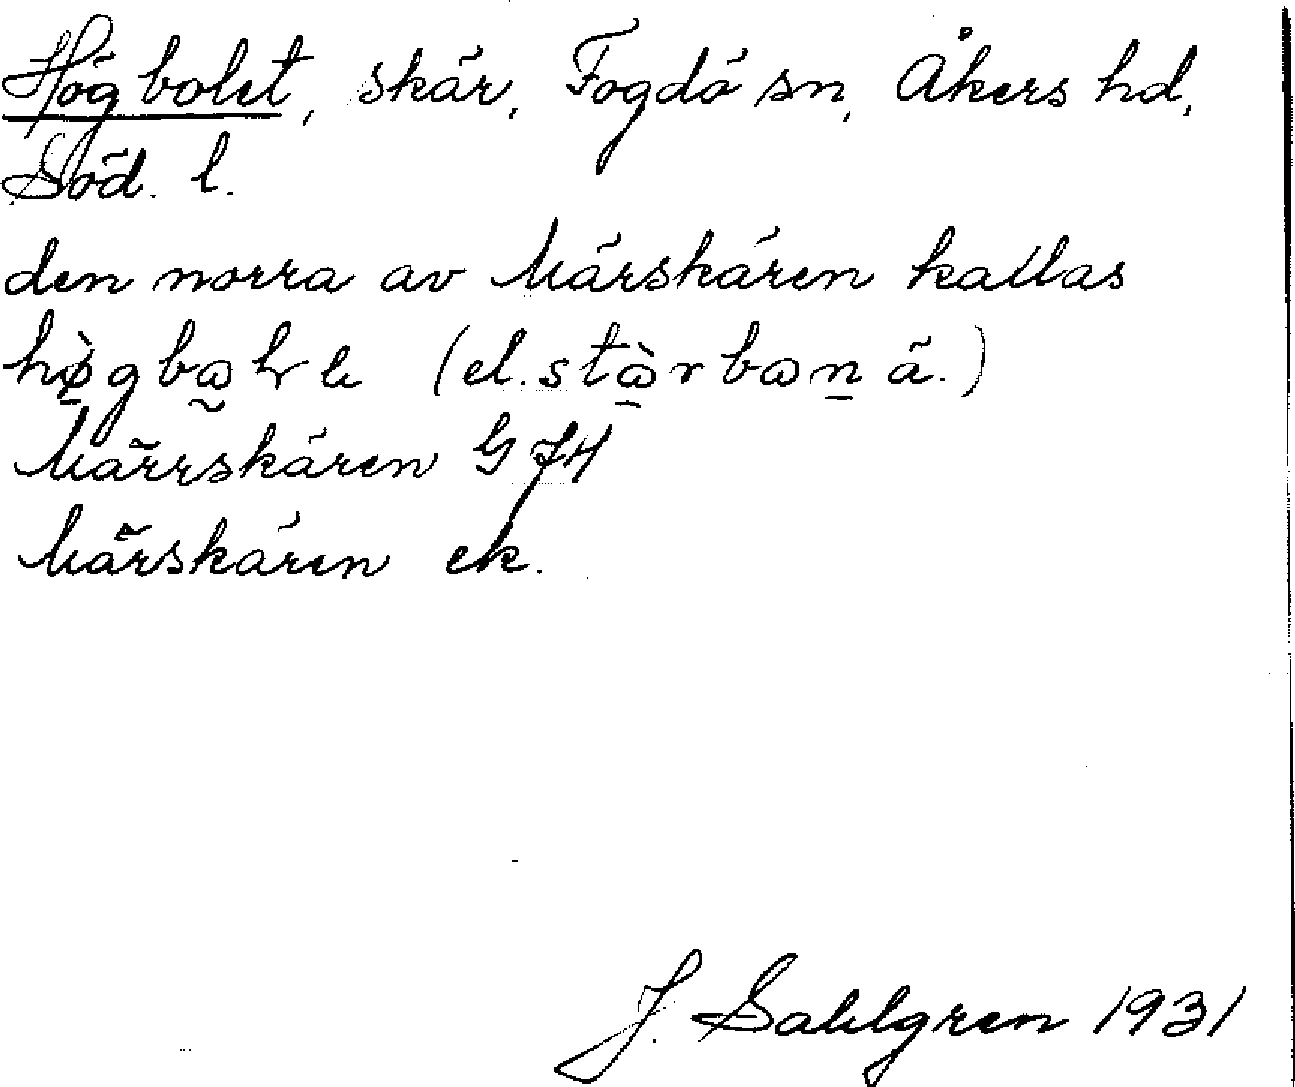 Högbolet, skär, Fogdö sn, Åkers hd,
Söd. l.
den norra av Märskären kallas
(el.
Märrskären G J H
Märskären ek.
J. Sahlgren 1931